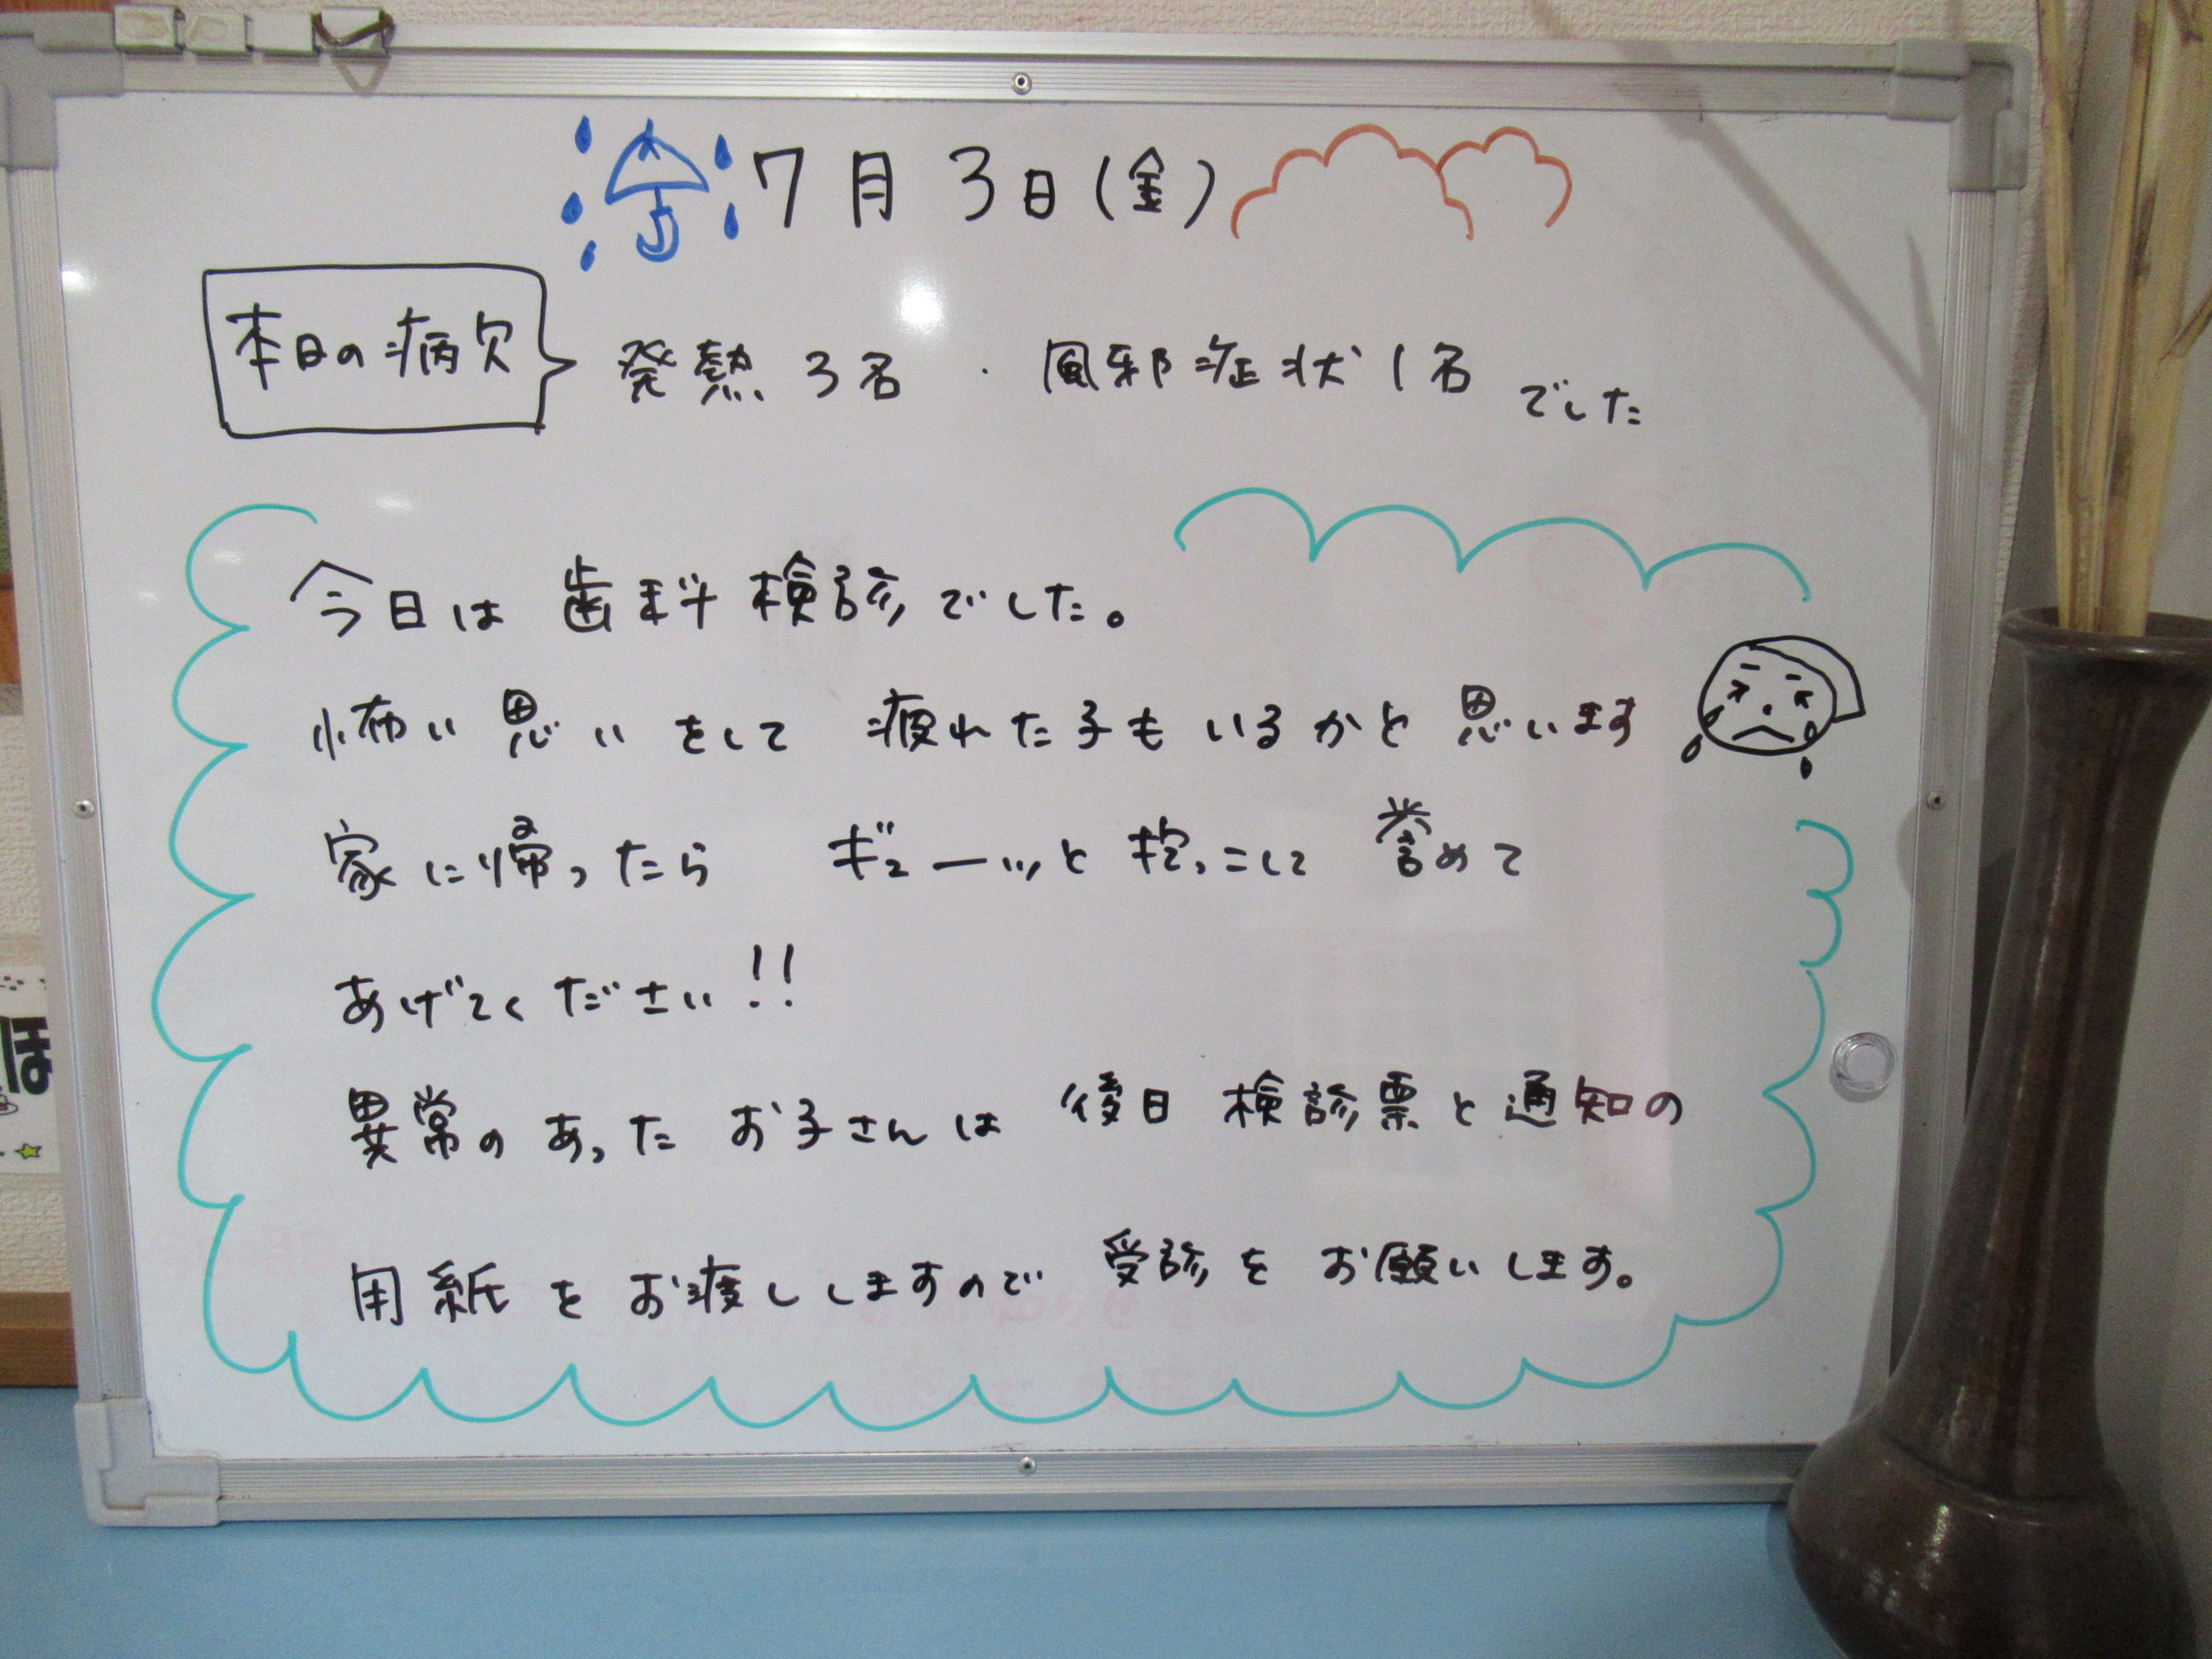 7月3日(金)
本日の病欠
発熱3名・風邪症状1名でした
今日は歯科検診でした。
怖い思いをして 疲れた子もいるかと思います
家に帰ったら ギューッと抱っこして 誉めて
あげてください!!
異常のあったお子さんは 後日 検診票と通知の
用紙をお渡ししますので 受診をお願いします。
ほ